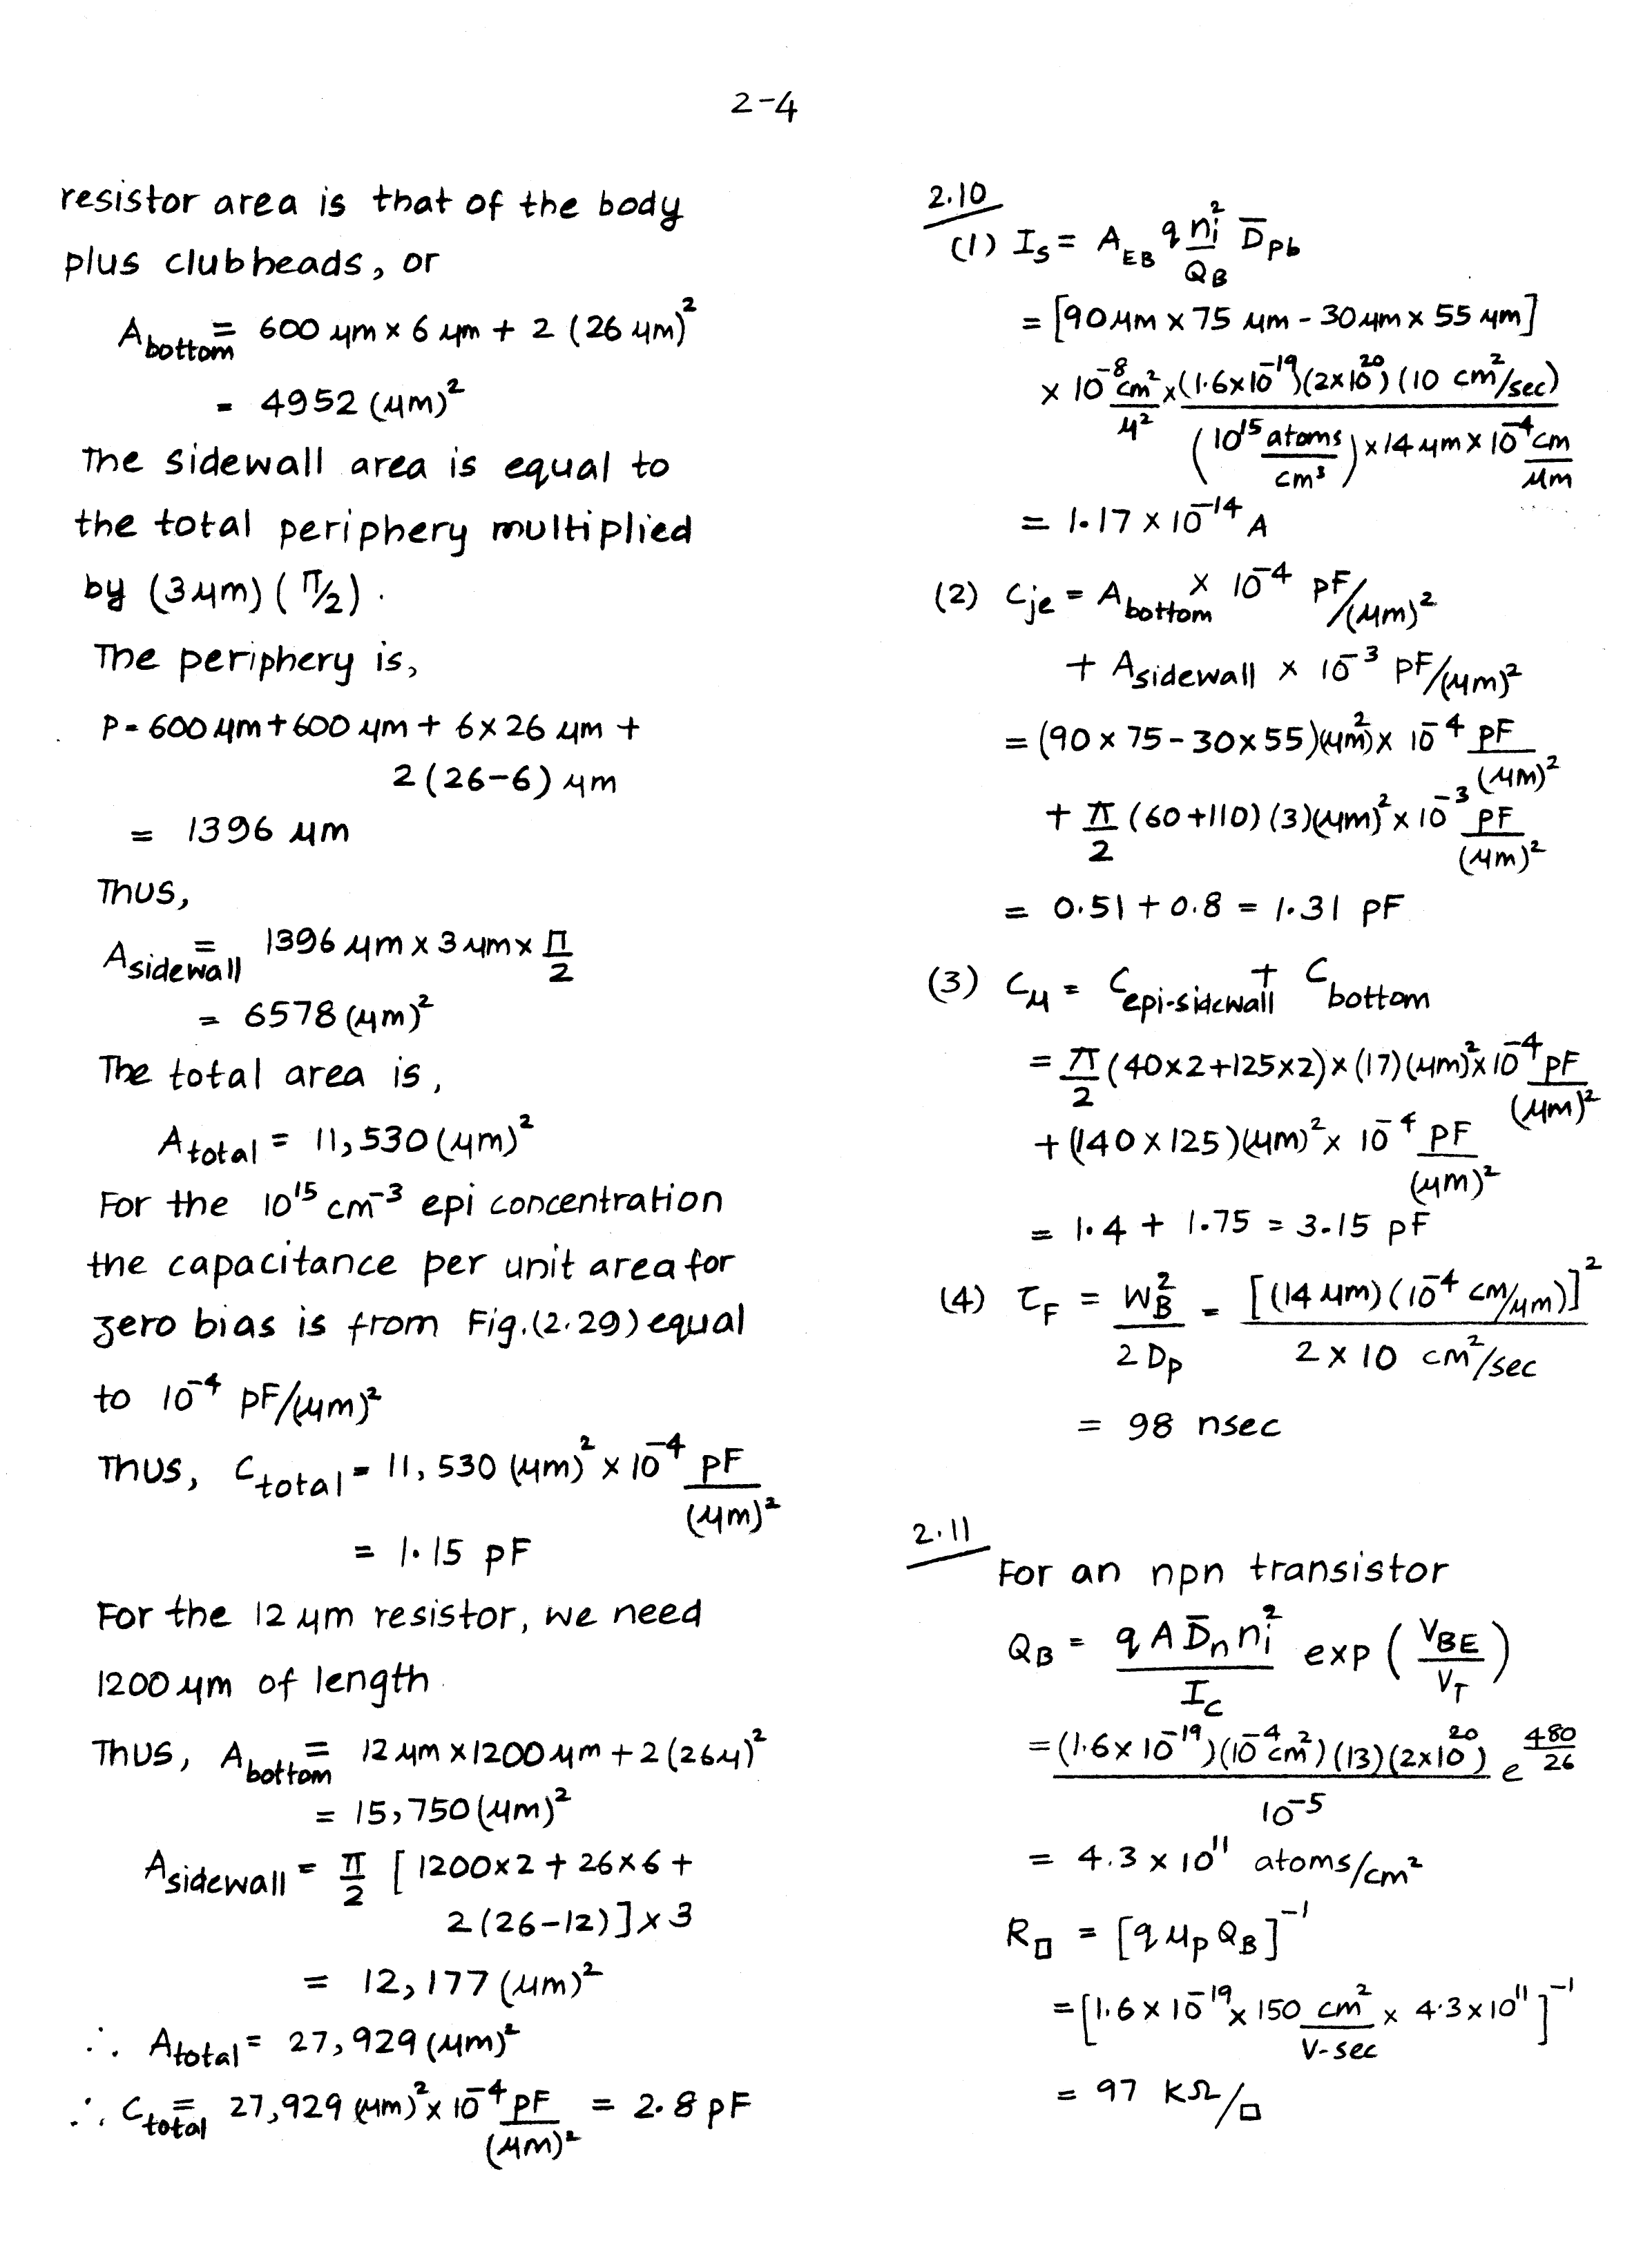 2-4
resistor area is that of the body
plus clubheads, or
A_bottom = 600 μm x 6 μm + 2 (26 μm)²
= 4952 (μm)²
The sidewall area is equal to
the total periphery multiplied
by (3 μm) (π/2).
The periphery is,
P = 600 μm + 600 μm + 6 x 26 μm +
2 (26-6) μm
= 1396 μm
Thus,
A_sidewall = 1396 μm x 3 μm x π/2
= 6578 (μm)²
The total area is,
A_total = 11,530 (μm)²
For the 10¹⁵ cm⁻³ epi concentration
the capacitance per unit area for
zero bias is from Fig.(2.29) equal
to 10⁻⁴ pF/(μm)²
Thus, C_total = 11,530 (μm)² x 10⁻⁴ pF/(μm)²
= 1.15 pF
For the 12 μm resistor, we need
1200 μm of length.
Thus, A_bottom = 12 μm x 1200 μm + 2 (26μ)²
= 15,750 (μm)²
A_sidewall = π/2 [ 1200x2 + 26x6 +
2 (26-12) ] x 3
= 12,177 (μm)²
∴ A_total = 27,929 (μm)²
∴ C_total = 27,929 (μm)² x 10⁻⁴ pF/(μm)² = 2.8 pF
2.10
(1) I_S = A_EB q n_i²/Q_B D̄_pb
= [90 μm x 75 μm - 30 μm x 55 μm]
x 10⁻⁸ cm²/μ² x (1.6x10⁻¹⁹)(2x10²⁰)(10 cm²/sec) / (10¹⁵ atoms/cm³) x 14 μm x 10⁻⁴ cm/μm
= 1.17 x 10⁻¹⁴ A
(2) C_je = A_bottom x 10⁻⁴ pF/(μm)²
+ A_sidewall x 10⁻³ pF/(μm)²
= (90 x 75 - 30 x 55)(μm)² x 10⁻⁴ pF/(μm)²
+ π/2 (60+110) (3)(μm)² x 10⁻³ pF/(μm)²
= 0.51 + 0.8 = 1.31 pF
(3) C_μ = C_epi-sidewall + C_bottom
= π/2 (40x2+125x2) x (17) (μm)² x 10⁻⁴ pF/(μm)²
+ (140 x 125)(μm)² x 10⁻⁴ pF/(μm)²
= 1.4 + 1.75 = 3.15 pF
(4) τ_F = W_B²/2 D_p = [(14 μm)(10⁻⁴ cm/μm)]² / 2 x 10 cm²/sec
= 98 nsec
2.11
For an npn transistor
Q_B = q A D̄_n n_i²/I_C exp (V_BE/V_T)
= (1.6x 10⁻¹⁹)(10⁻⁴ cm²)(13)(2x10²⁰)/10⁻⁵ e^(480/26)
= 4.3 x 10¹¹ atoms/cm²
R_□ = [q μ_p Q_B]⁻¹
= [1.6 x 10⁻¹⁹ x 150 cm²/V-sec x 4.3x10¹¹]⁻¹
= 97 KΩ/□